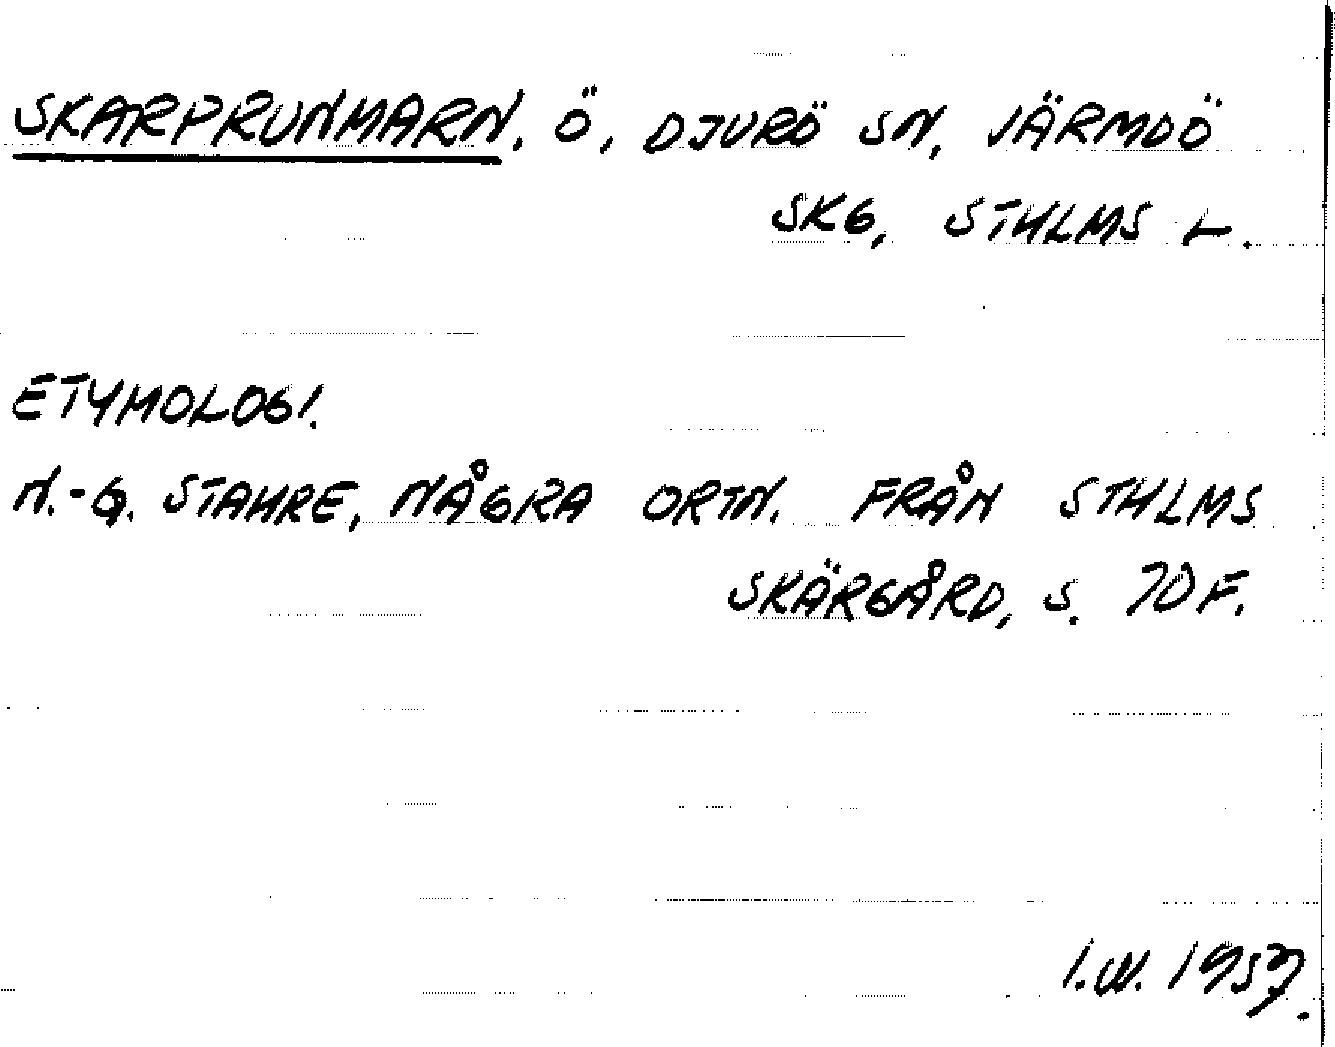 SKARPRUNMARN, Ö, DJURÖ SN, VÄRMDÖ
SKG, STHLMS L.
ETYMOLOGI.
N.-G. STAHRE, NÅGRA ORTN. FRÅN STHLMS
SKÄRGÅRD, S. 70 F.
1957.